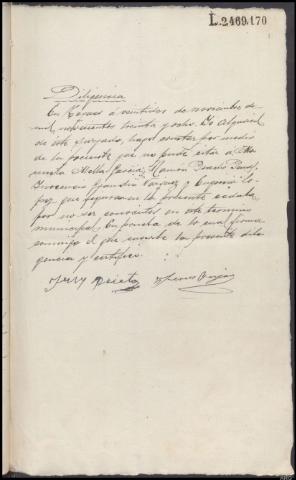 L.2469.170
Diligencia
En Xerez á veintidos de noviembre de
mil novecientos treinta y ocho. Yo Alguacil
de este Juzgado, hago constar por medio
de la presente que no pude citar á Ma
nuela Mella García, Ramón Prado
Inocencio González Vazquez y Eugenio Ló
pez que figuran en la presente cedula
por no ser conocidos en este termino
municipal, En prueba de lo cual firma
conmigo el que suscribe la presente dili
gencia y certifico.
Prieto